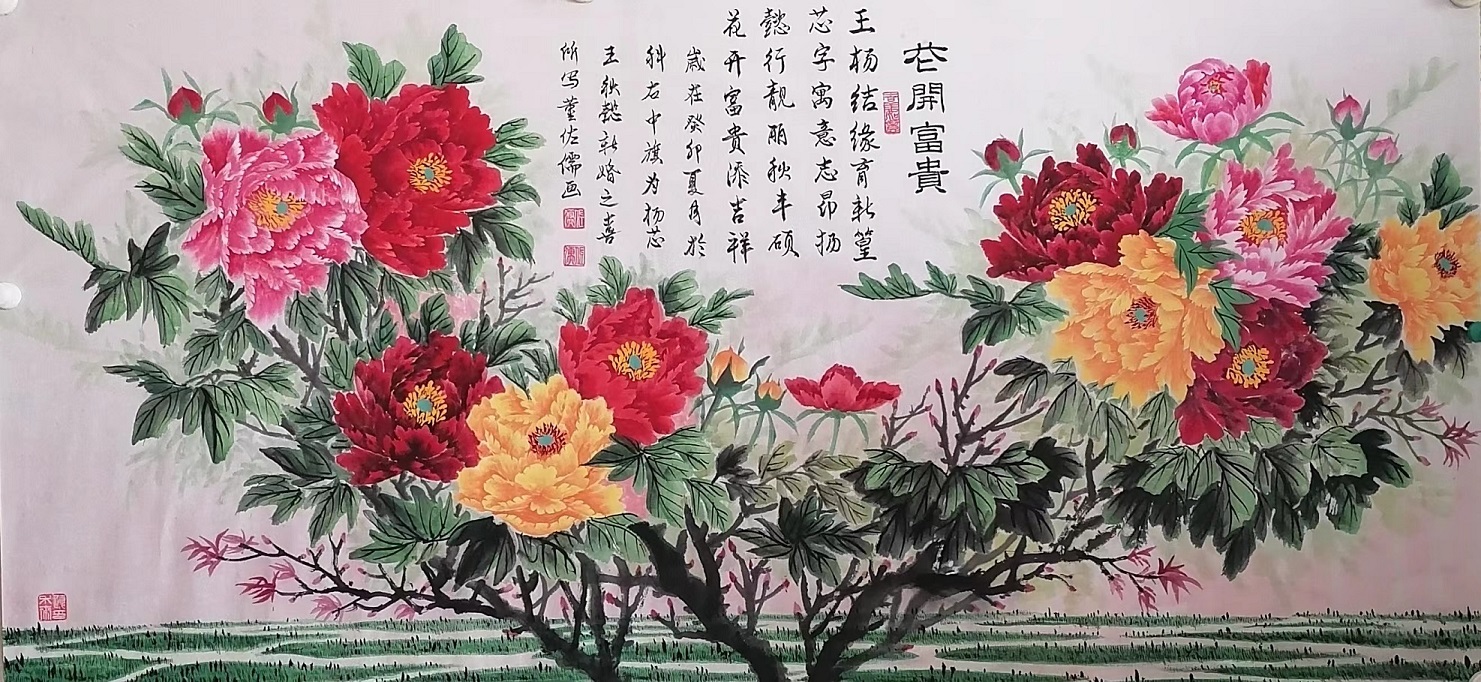 花開富貴
王杨结缘育新篁
芯字寓意志昂扬
懿行靓丽秋丰硕
花开富贵添吉祥
岁在癸卯夏月於
科右中旗为杨芯
王秋懿新婚之喜
所写董佐儒画